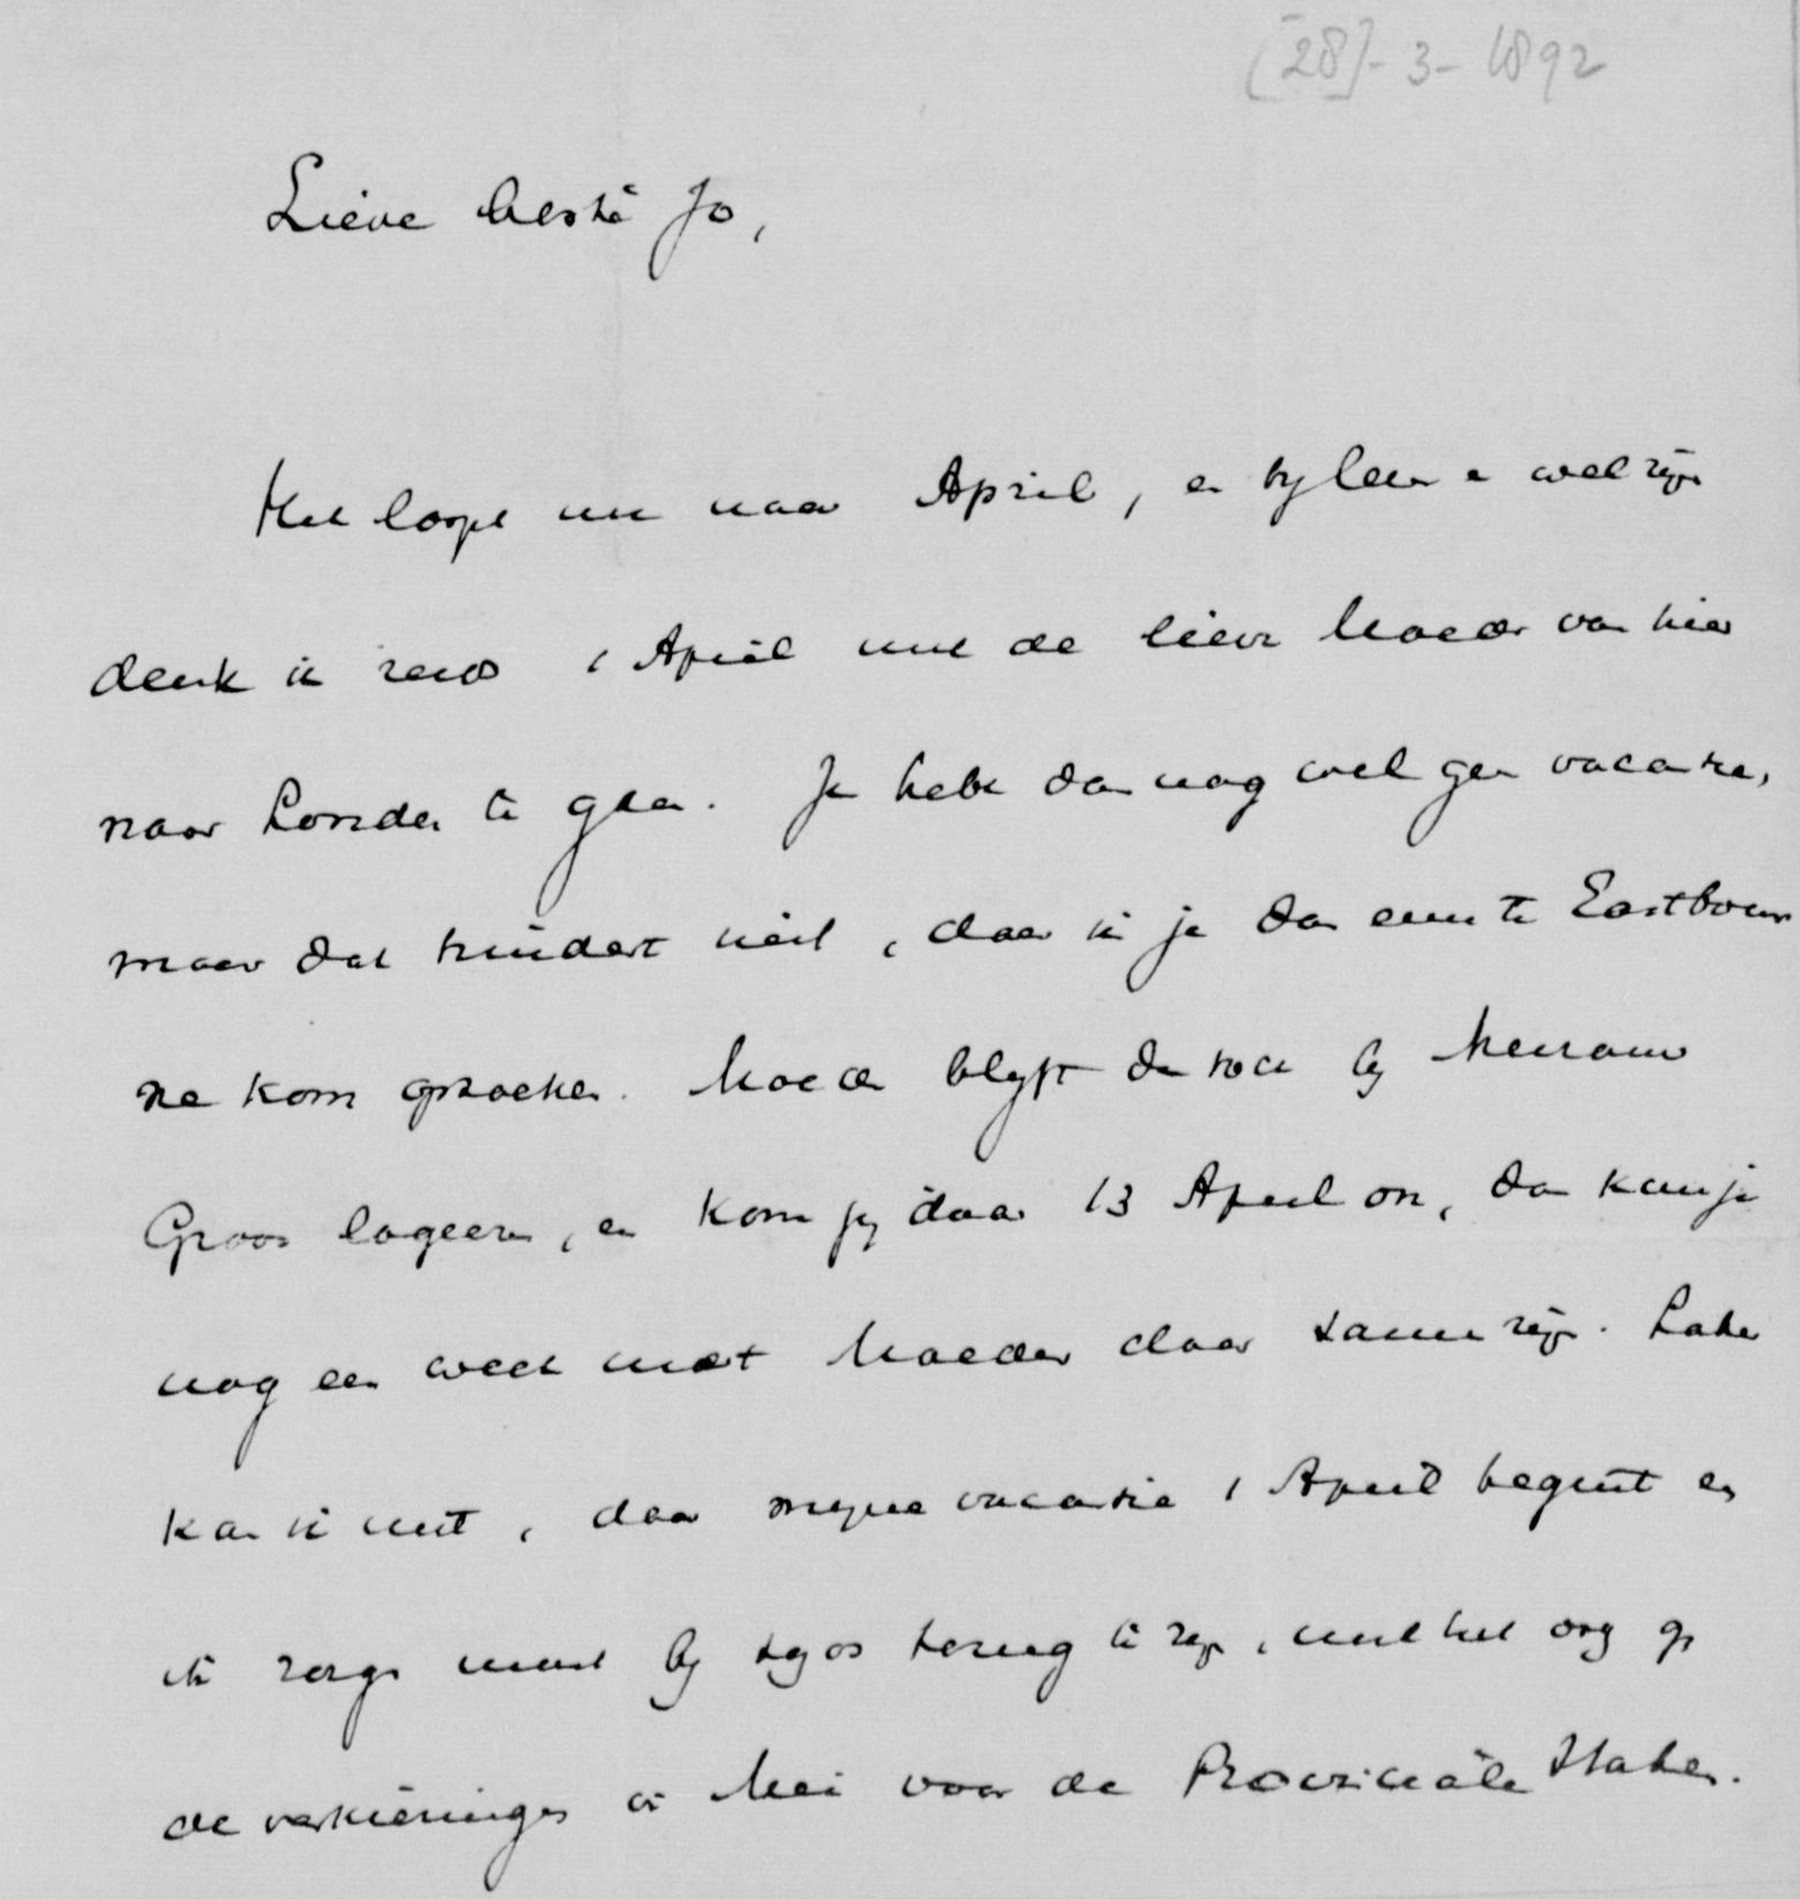 [28]-3-1892
Lieve beste Jo,
Het loopt nu naar April, en by leven en welzyn
denk ik rond 1 April met de lieve Moeder van hier
naar Londen te gaan. Je hebt dan nog wel geen vacantie,
maar dat hindert niet, daar ik je dan even te Eastbour
ne kom opzoeken. Moeder blyft dan toch by Mevrouw
Groos logeeren, en kom jy daar 13 April aan, dan kun je
nog een week met Moeder daar samen zyn. Later
kan ik niet, daar myne vacantie 1 April begint en
ik zorgen moet by tyds terug te zyn, met het oog op
de verkiezingen in Mei voor de Provinciale Staten.